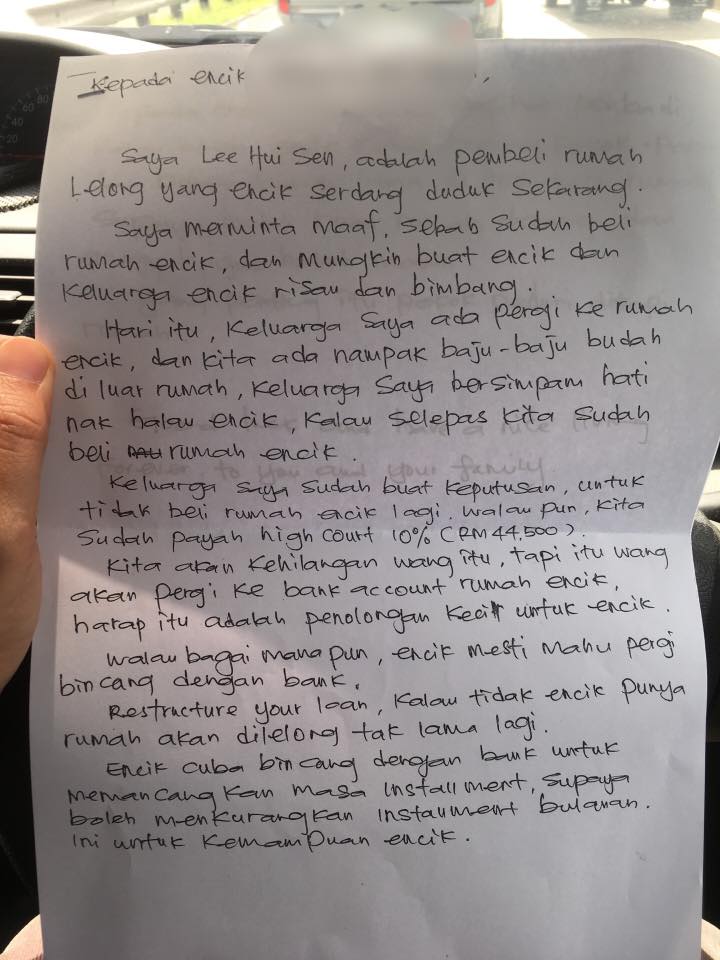 Kepada encik
Saya Lee Hui Sen, adalah pembeli rumah
Lelong yang encik serdang duduk sekarang.
Saya merminta maaf, sebab sudah beli
rumah encik, dan mungkin buat encik dan
keluarga encik risau dan bimbang.
Hari itu, keluarga saya ada pergi ke rumah
encik, dan kita ada nampak baju-baju budah
di luar rumah, keluarga saya bersimpam hati
nak halau encik, kalau selepas kita sudah
beli rumah encik.
Keluarga saya sudah buat keputusan, untuk
tidak beli rumah encik lagi. walau pun, kita
sudah payah high court 10% (RM 44,500).
Kita akan kehilangan wang itu, tapi itu wang
akan pergi ke bank account rumah encik,
harap itu adalah penolongan kecil untuk encik.
walau bagai mana pun, encik mesti mahu pergi
bincang dengan bank.
Restructure your loan, kalau tidak encik punya
rumah akan dilelong tak lama lagi.
Encik cuba bincang dengan bank untuk
memancangkan masa installment, supaya
boleh menkurangkan installment bulanan.
Ini untuk kemampuan encik.
forever, to you and your family
20
40
60
80